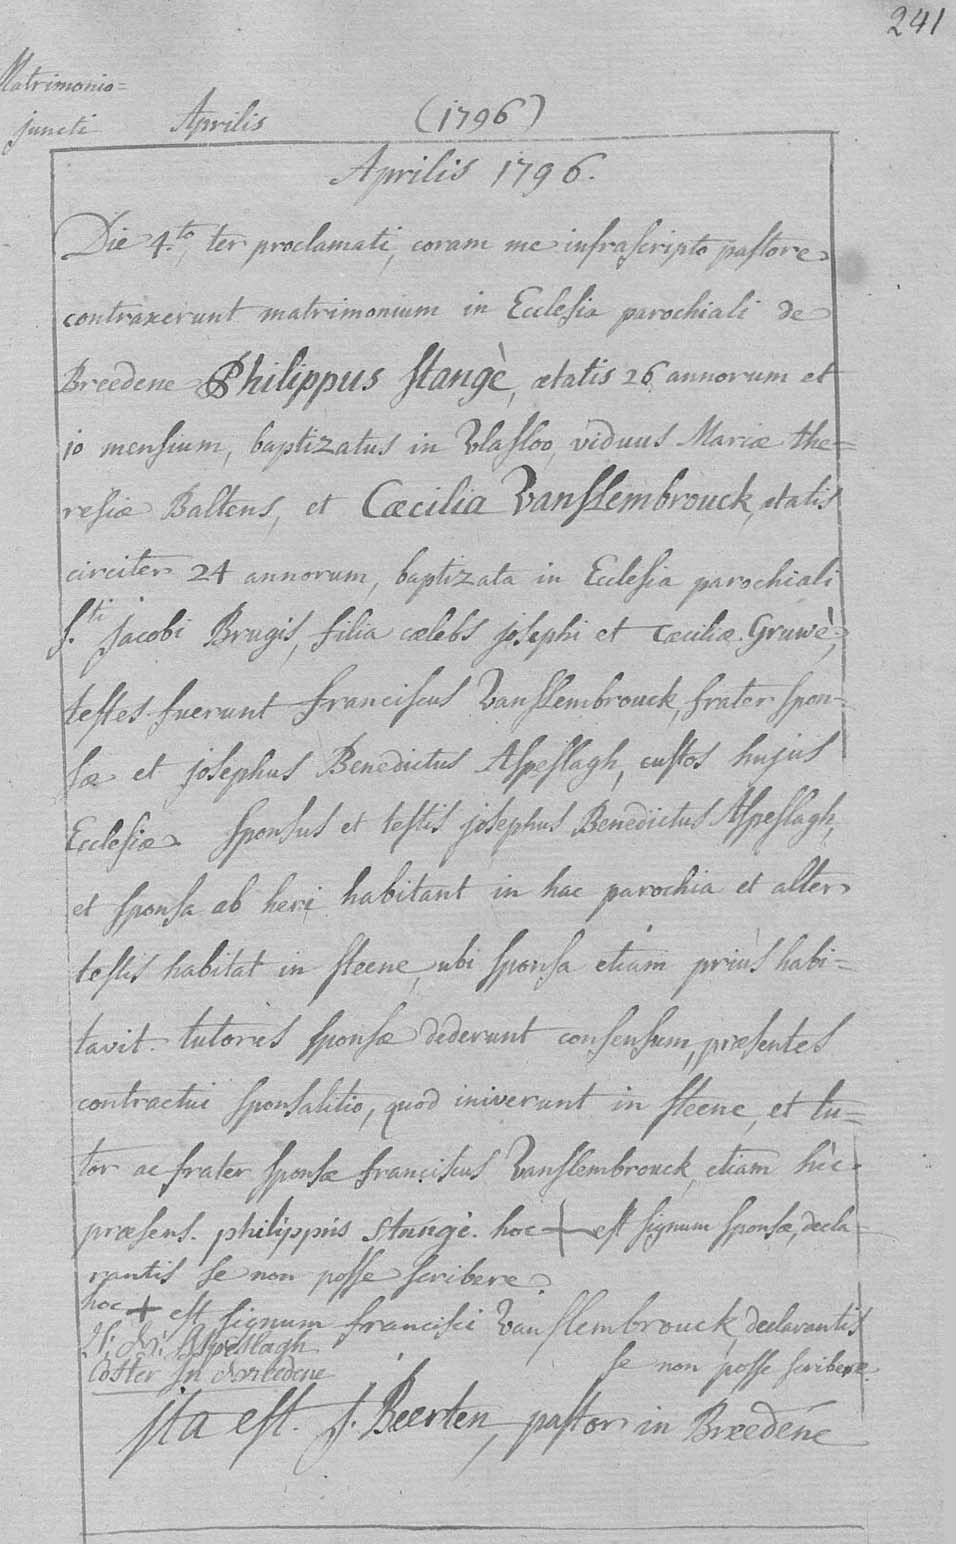 241
Matrimonio=
juncti Aprilis (1796)
Aprilis 1796.
Die 4.to, ter proclamati, coram me infrascripto pastore
contraxerunt matrimonium in Ecclesia parochiali de
Breedene Philippus Stangè, ætatis 26 annorum et
10 mensium, baptizatus in Vlasloo, viduus Mariæ the=
resiæ Baltens, et Cæcilia Vanslembrouck, ætatis
circiter 24 annorum, baptizata in Ecclesia parochiali
S.ti jacobi Brugis, filia cælebs josephi et Cæciliæ Gruwè;
testes fuerunt franciscus Vanslembrouck, frater spon=
sæ et josephus Benedictus Aspeslagh, custos hujus
Ecclesiæ. Sponsus et testis josephus Benedictus Aspeslagh,
et sponsa ab heri habitant in hac parochia et alter
testis habitat in steene, ubi sponsa etiam priùs habi=
tavit. tutores sponsæ dederunt consensum, præsentes
contractui sponsalitio, quod iniverunt in steene, et tu=
tor ac frater sponsæ franciscus Vanslembrouck, etiam hìc
præsens. philippus stangè. hoc + est signum sponsæ, decla=
rantis se non posse scribere
hoc + est signum francisci Vanslembrouck, declarantis
se non posse scribere.
Aspeslagh
Coster In breedene
ita est. J. Beerten, pastor in Breedene